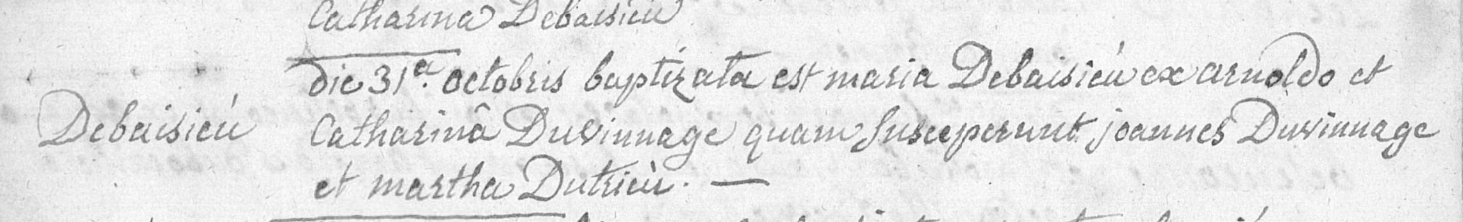 Catharina Debaisieù
die 31ª. octobris baptizata est maria Debaisieù ex arnoldo et
Debaisieù Catharinâ Duvinnage quam susceperunt joannes Duvinnage
et martha Dutrieù. —